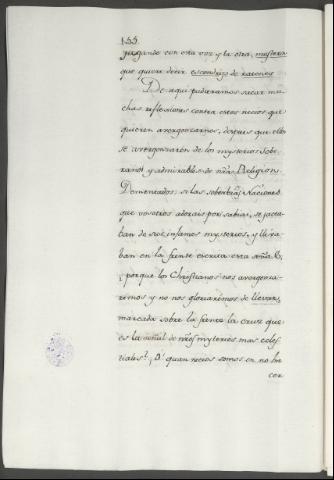 155
jugando con esta voz y la otra, mysteria
que quiere decir escondrijo de ratones
De aqui pudieramos sacar mu-
chas reflexiones contra estos necios que
quieren avergonzarnos, despues que ellos
se avergonzaron de los mysterios sobe-
ranos y admirables de nrã Religion.
Dementados: si las soberbias Naciones
que vosotros adorais por sabias, se jacta-
ban de sus infames mysterios, y lleva-
ban en la frente escrita esta
¿porque los Christianos nos avergonza-
rémos y no nos gloriarémos de llevar
marcada sobre la frente la cruz que
es la señal de nrõs mysterios mas celes-
tiales? ¡O quan necios somos en no ha
cer